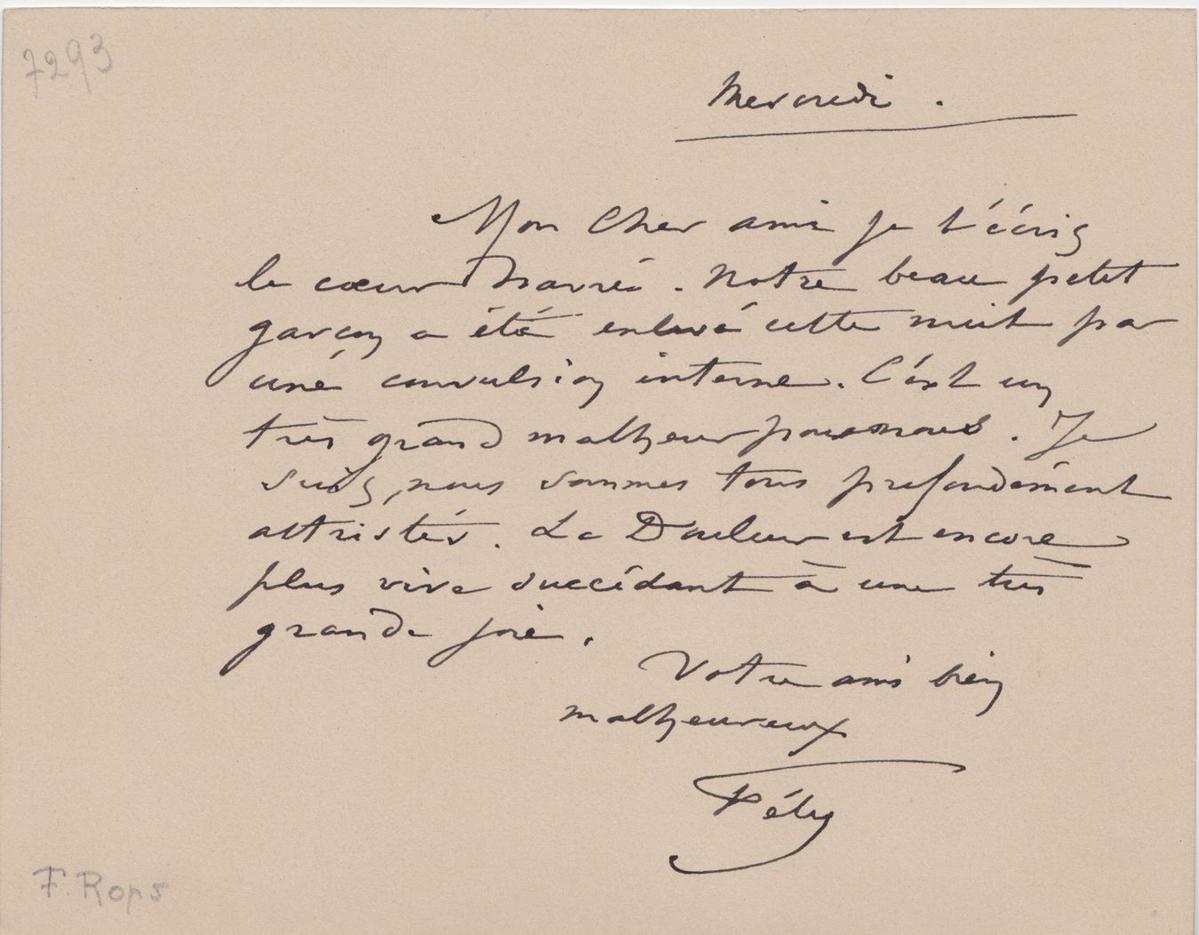 7293
Mercredi.
Mon Cher ami je t'écris
le cœur navré. Notre beau petit
garçon a été enlevé cette nuit par
une convulsion interne. C'est un
très grand malheur pour nous. Je
suis, nous sommes tous profondément
attristés. La Douleur est encore
plus vive succédant à une très
grande joie.
Votre ami bien
malheureux
Fély
F. Rops